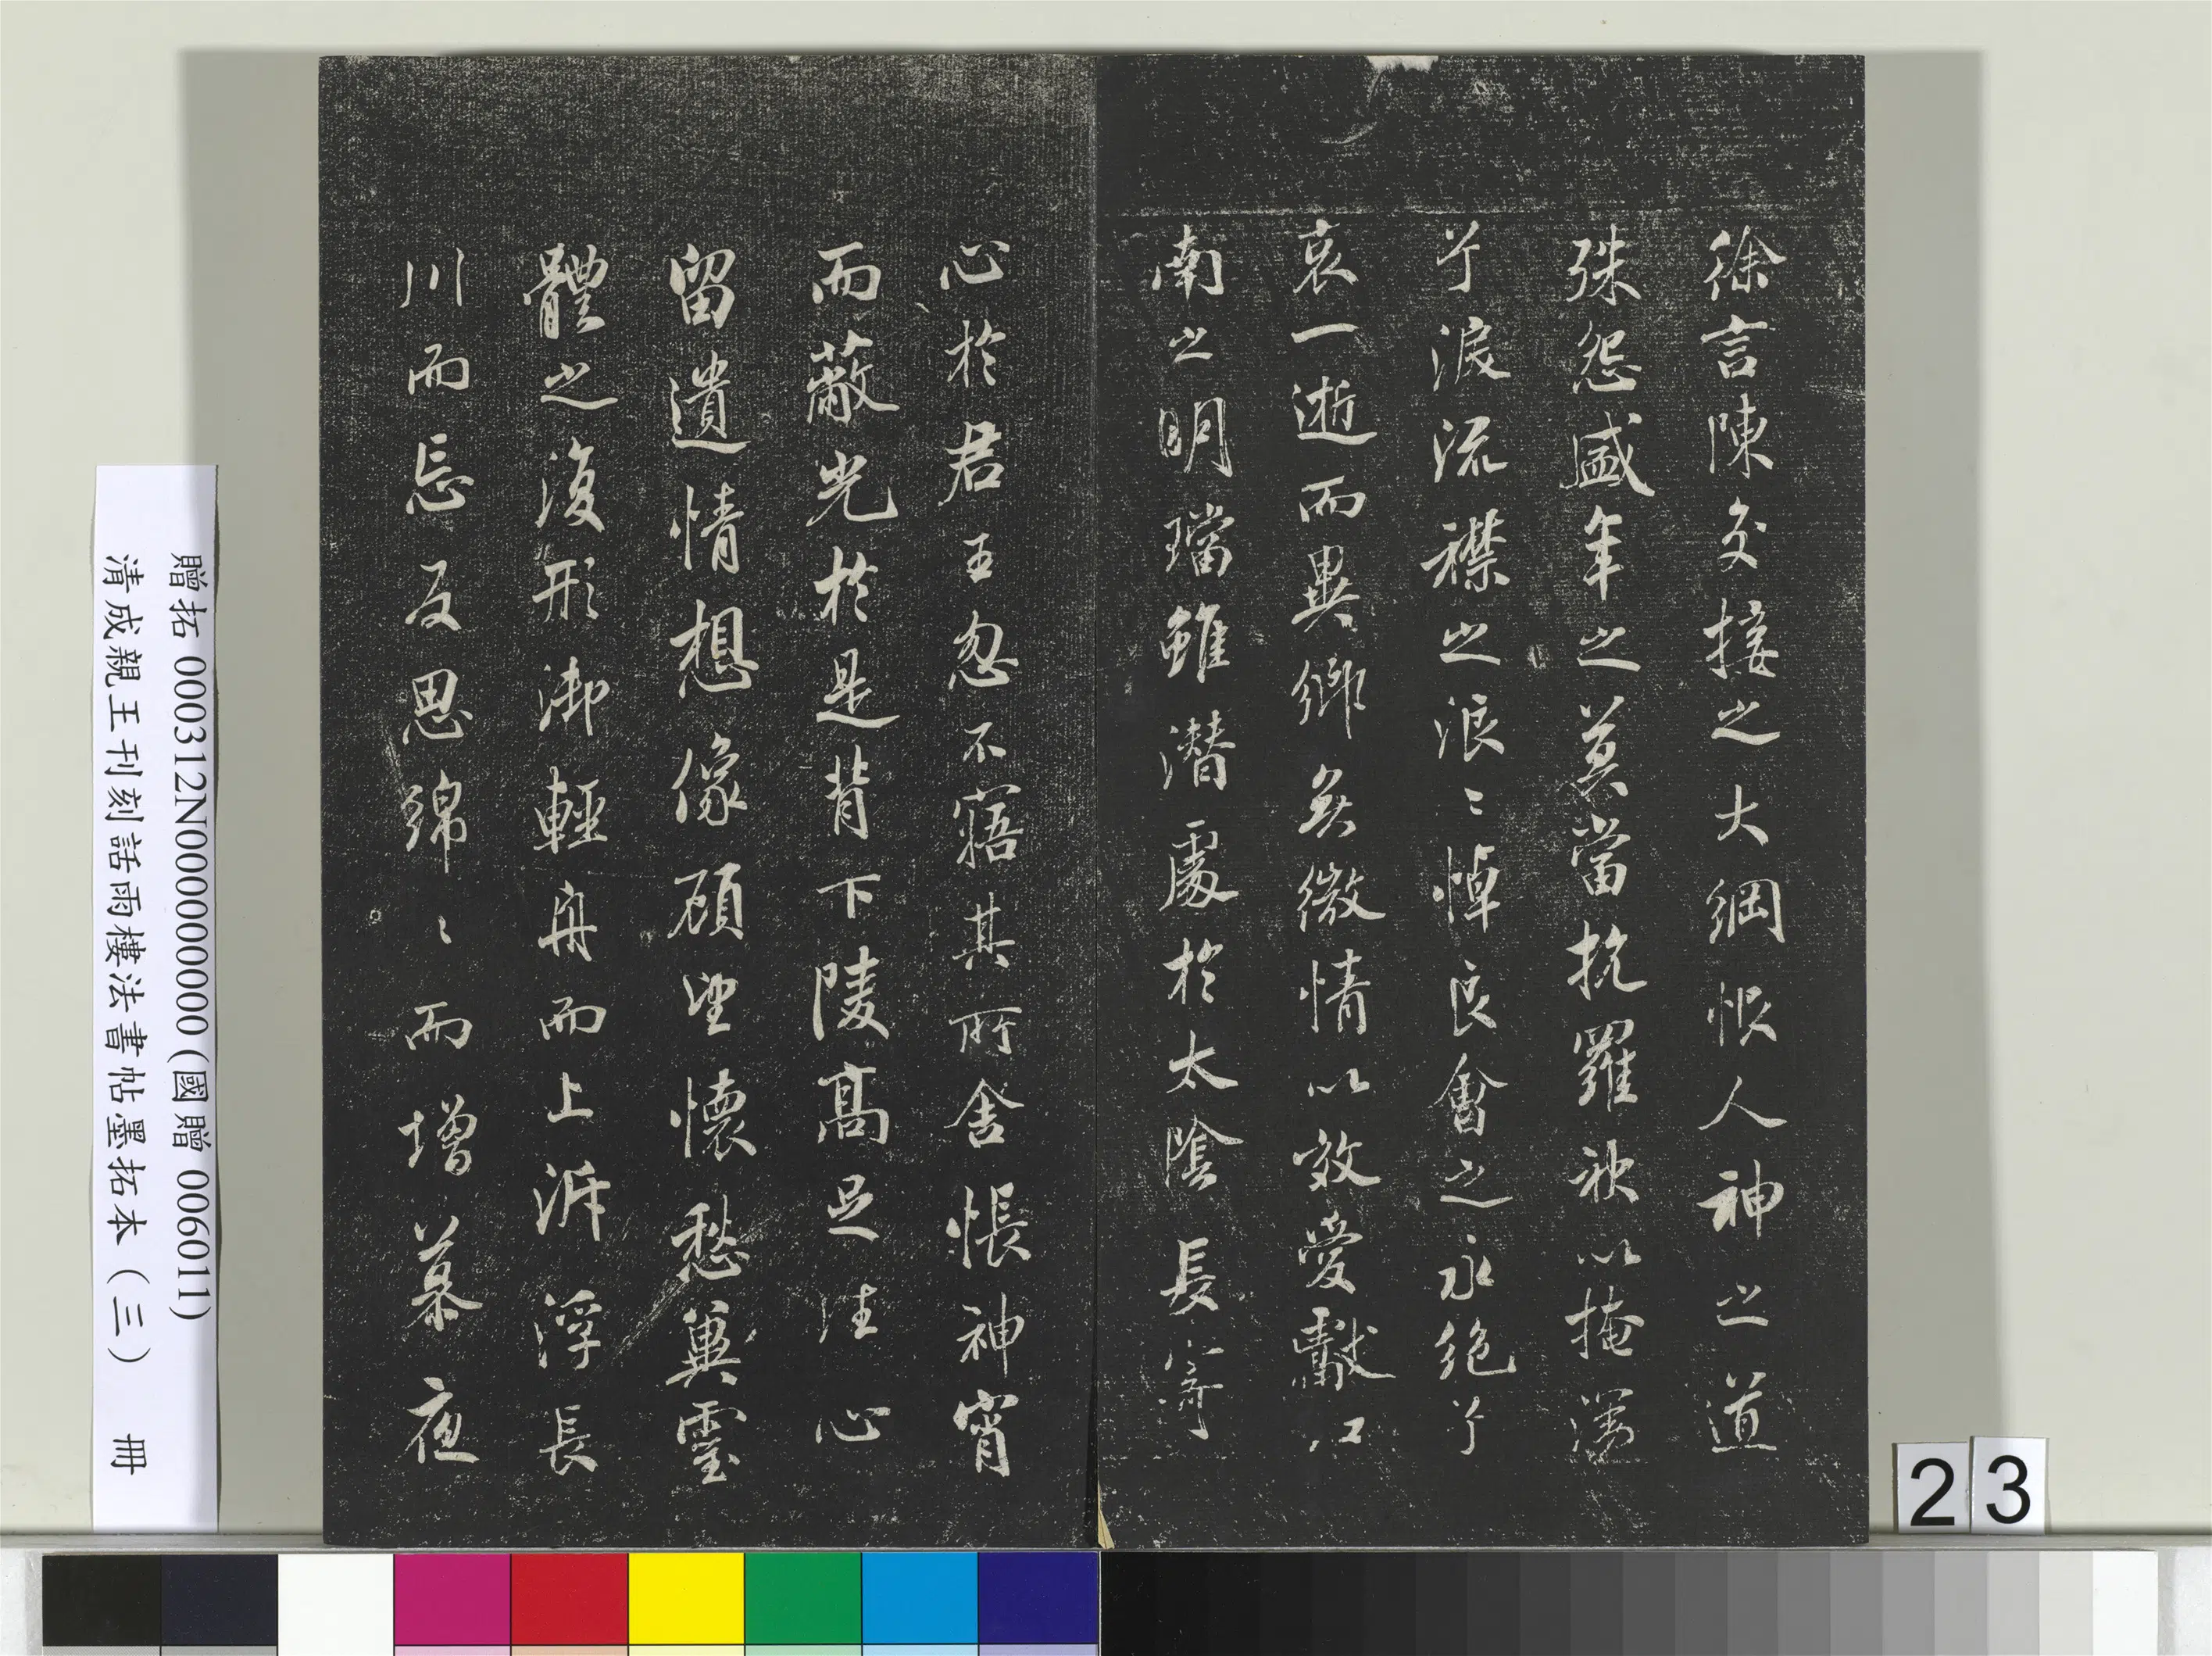 徐言陳交接之大綱恨人神之道
殊怨盛年之莫當抗羅袂以掩涕
兮淚流襟之浪〻悼良會之永絕兮
哀一逝而異鄉無微情以效愛獻江
南之明璫雖潛處於太陰長寄
心於君王忽不寤其所舍悵神宵
而蔽光於是背下陵高足往心
留遺情想像顧望懷愁冀靈
體之復形御輕舟而上泝浮長
川而忘反思綿〻而增慕夜
贈拓 000312N000000000(國贈 006011)
清成親王刊刻詒晉樓法書帖墨拓本(三) 冊
23